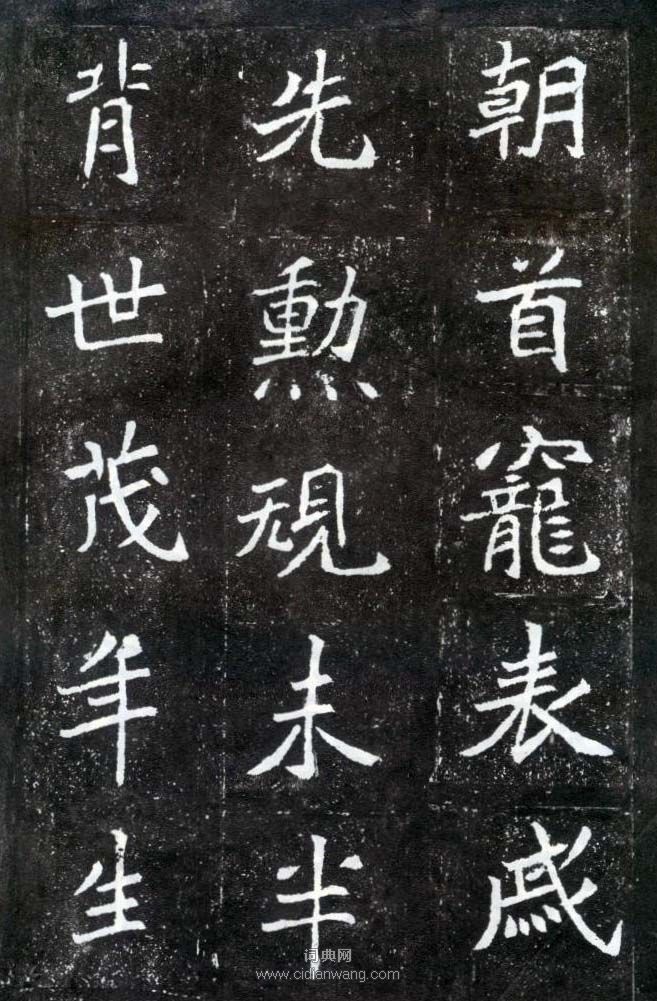 朝首寵表戚
先勳規未半
背世茂年生
词典网
www.cidianwang.com